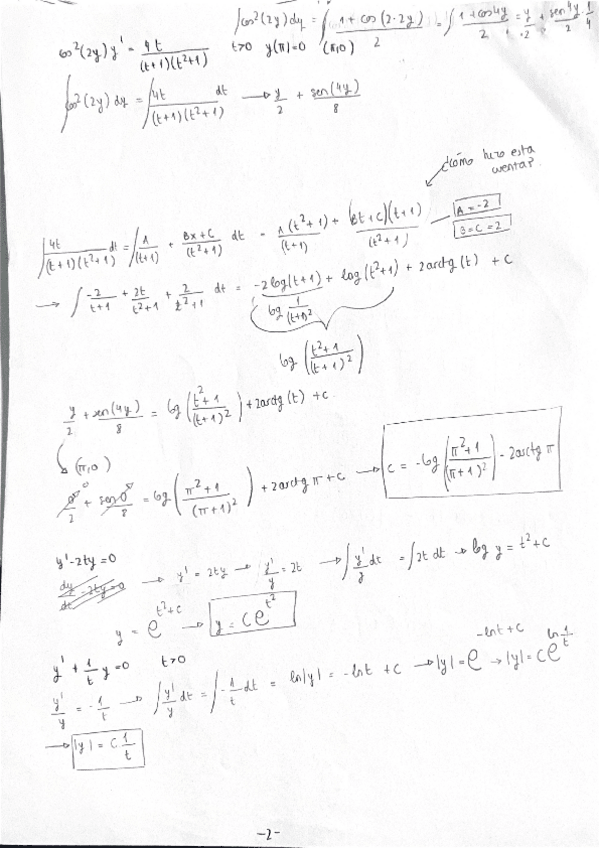 ∫cos²(2y)dy = ∫ (1 + cos(2·2y))/2 = ∫ (1 + cos4y)/2 = y/2 + sen4y/2 · 1/4
cos²(2y) y' = 4t/((t+1)(t²+1)) t>0 y(π)=0 (π,0)
∫cos²(2y) dy = ∫ 4t/((t+1)(t²+1)) dt → y/2 + sen(4y)/8
¿cómo hizo esta cuenta?
∫ 4t/((t+1)(t²+1)) dt = ∫ A/(t+1) + (Bx+C)/(t²+1) dt = A(t²+1)/(t+1) + (Bt+C)(t+1)/(t²+1)
A = -2
B = C = 2
→ ∫ -2/(t+1) + 2t/(t²+1) + 2/(t²+1) dt = -2log(t+1) + log(t²+1) + 2arctg(t) + C
log 1/(t+1)²
log ((t²+1)/(t+1)²)
y/2 + sen(4y)/8 = log((t²+1)/(t+1)²) + 2arctg(t) + C
(π,0)
0/2 + sen0/8 = log((π²+1)/(π+1)²) + 2arctg π + C → C = -log((π²+1)/(π+1)²) - 2arctg π
y' - 2ty = 0
dy/dt - 2ty = 0 → y' = 2ty → y'/y = 2t → ∫ y'/y dt = ∫ 2t dt → log y = t² + C
y = e^(t²+C) → y = C e^(t²)
y' + 1/t y = 0 t>0
y'/y = -1/t → ∫ y'/y dt = ∫ -1/t dt = ln|y| = -lnt + C → |y| = e^(-lnt + C) → |y| = C e^(ln 1/t)
→ |y| = C 1/t
-2-